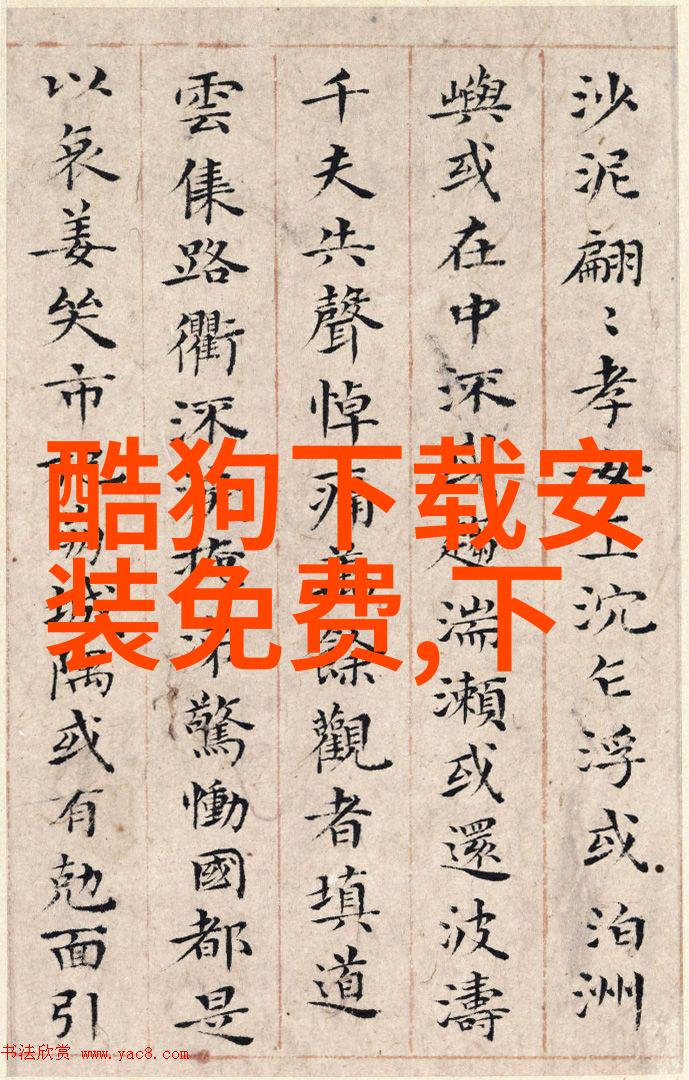 沙泥翩〻孝女沉乍浮或泊洲
嶼或在中流或趨湍瀨或還波濤
千夫失聲悼痛餘觀者填道
雲集路衢流驚慟國都是
以哀姜哭市城隅或有剋面引
酷狗下载安
装免费,下
书法欣赏 www.yac8.com